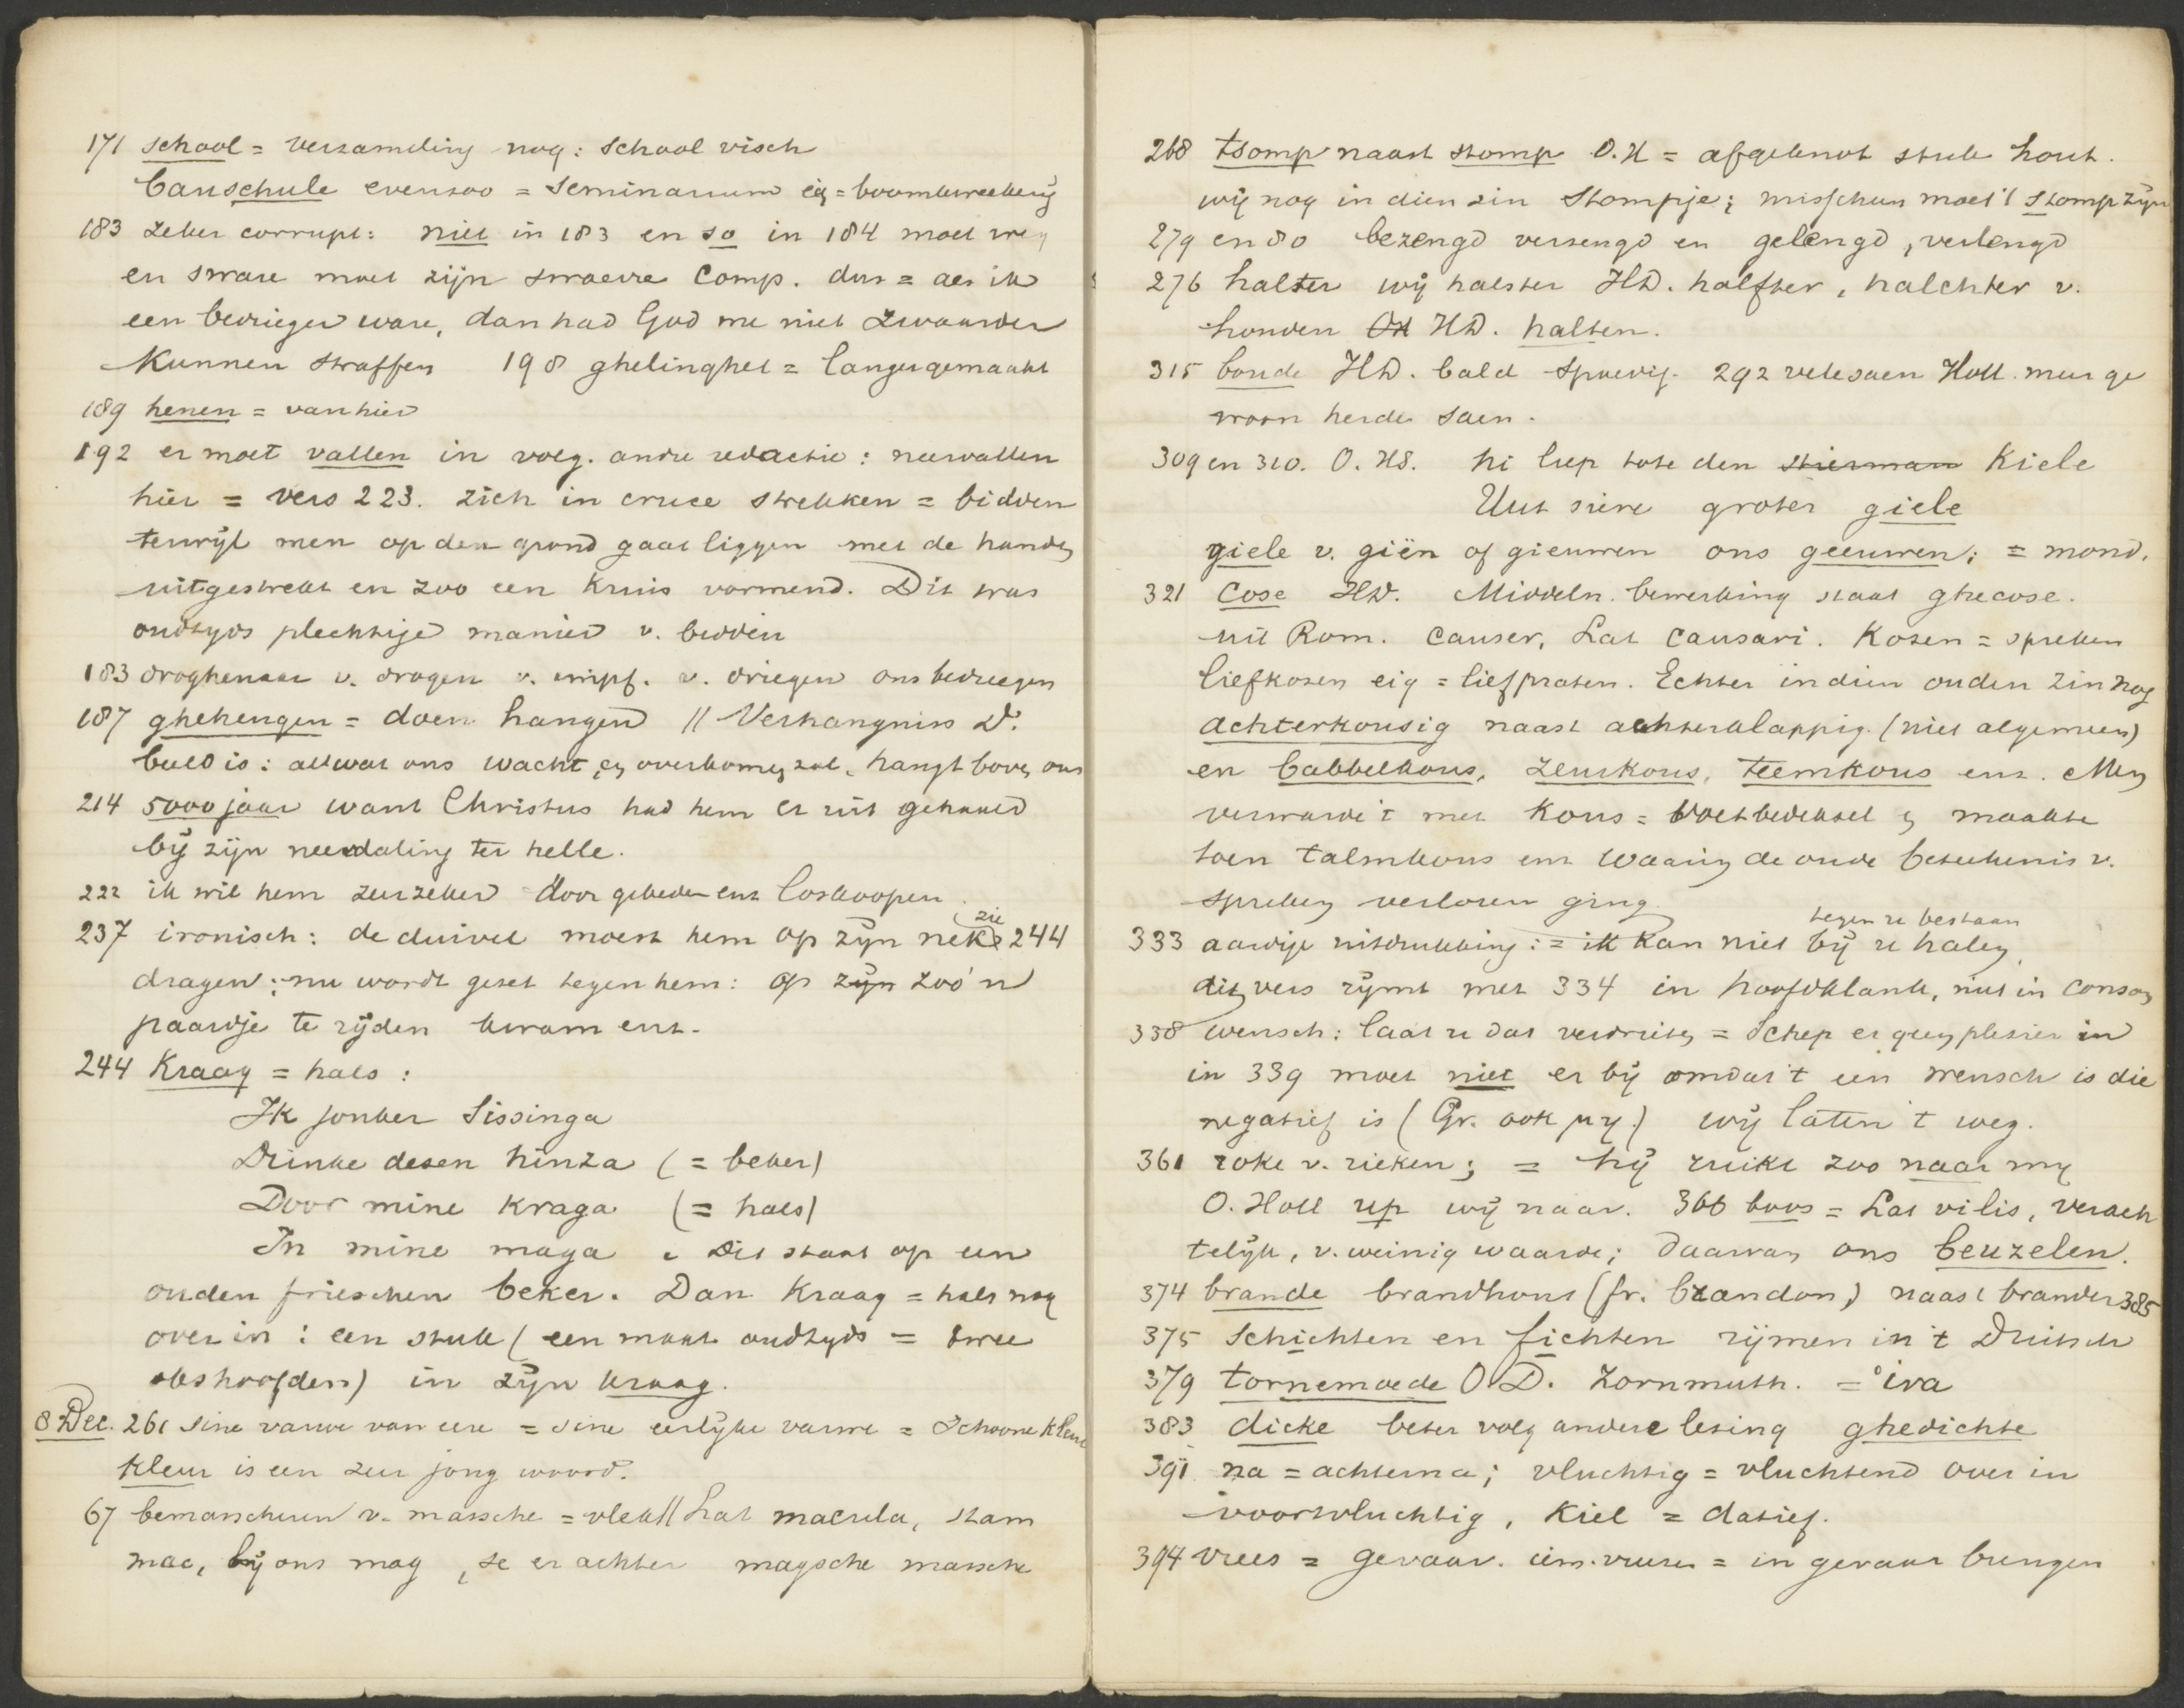 171 school = verzameling nog: school visch
bauschule evenzoo = seminarium eig = boomkweekerij
183 zeker corrupt: niet in 183 en so in 184 moet weg
en sware moet zijn swaerre Comp. dus = als ik
een bedrieger ware, dan had God me niet zwaarder
kunnen straffen 198 ghelinghet = langer gemaakt
189 henen = van hier
192 er moet vallen in volg. andre redactie: neervallen
hier = vers 223. zich in cruce strekken = bidden
terwijl men op den grond gaat liggen met de handen
uitgestrekt en zoo een kruis vormend. Dit was
oudtijds plechtige manier v. bidden
183 droghenaar v. drogen v. impf. v. driegen ons bedriegen
187 ghehengen = doen hangen // Verhängniss D.
beeld is: al wat ons wacht, en overkomen zal, hangt boven ons
214 5000 jaar want Christus had hem er uit gehaald
bij zijn neerdaling ter helle.
222 ik wil hem zeer zeker door gebeden enz loskoopen.
237 ironisch: de duivel moest hem op zijn nek (zie 244
dragen; nu wordt gezet tegen hem: op zijn zoo'n
paardje te rijden kwam enz.
244 Kraag = hals:
Ik jonker Sissinga
Drinke desen hinza (= beker)
Door mine kraga (= hals)
In mine maga. Dit staat op een
ouden frieschen beker. Dan kraag = hals nog
over in: een stuk (een maat oudtijds = twee
okshoofden) in zijn kraag.
8 Dec. 261 sine varwe van eere = sine eerlijke varwe = schoone kleur
kleur is een zeer jong woord.
67 bemasscheren v. massche = vlek // Lat macula, stam
mac, bij ons mag, se er achter magsche massche
268 tsomp naast stomp O.H = afgeknot stuk hout.
wij nog in dien zin stompje; misschien moet 't stomp zijn
279 en 80 bezengd verzengd en gelengd, verlengd
276 halter wij halster HD. halfter, halchter v.
honden HD. halten.
315 boude HD. bald spoedig. 292 vele saen Holl. meer ge
woon herde saen.
309 en 310. O. HS. hi liep tote den stierman Kiele
Uut sire groter giele
giele v. giën of gieuwen ons geeuwen; = mond.
321 cose HD. Middeln. bewerking staat ghecose.
uit Rom. causer, Lat causari. Kozen = spreken
liefkozen eig = lief praten. Echter in dien ouden zin nog
achterkousig naast achterklappig. (niet algemeen)
en babbelkous, zeurkous, teemkous enz. Men
verwarde 't met kous = voetbedeksel en maakte
toen talmkous enz waarin de oude beteekenis v.
spreken verloren ging.
333 aardige uitdrukking: = ik kan niet bij u halen, tegen u bestaan
dit vers rijmt met 334 in hoofdklank, niet in conson
338 wensch: laat u dat verdrieten = schep er geen plezier in
in 339 moet niet er bij omdat 't een wensch is die
negatief is (Gr. ook μη.) wij laten 't weg.
361 roke v. rieken; = hij ruikt zoo naar mij
O. Holl up wij naar. 366 boos = Lat vilis, verach
telijk, v. weinig waarde; daarvan ons beuzelen.
374 brande brandhout (fr. brandon) naast brander 385
375 schichten en fichten rijmen in 't Duitsch
379 tornemoede O D. Zornmuth. = ira
383 dicke beter volg andere lezing ghedichte
391 na = achterna; vluchtig = vluchtend over in
voortvluchtig, kiel = datief.
394 vrees = gevaar. = in gevaar brengen